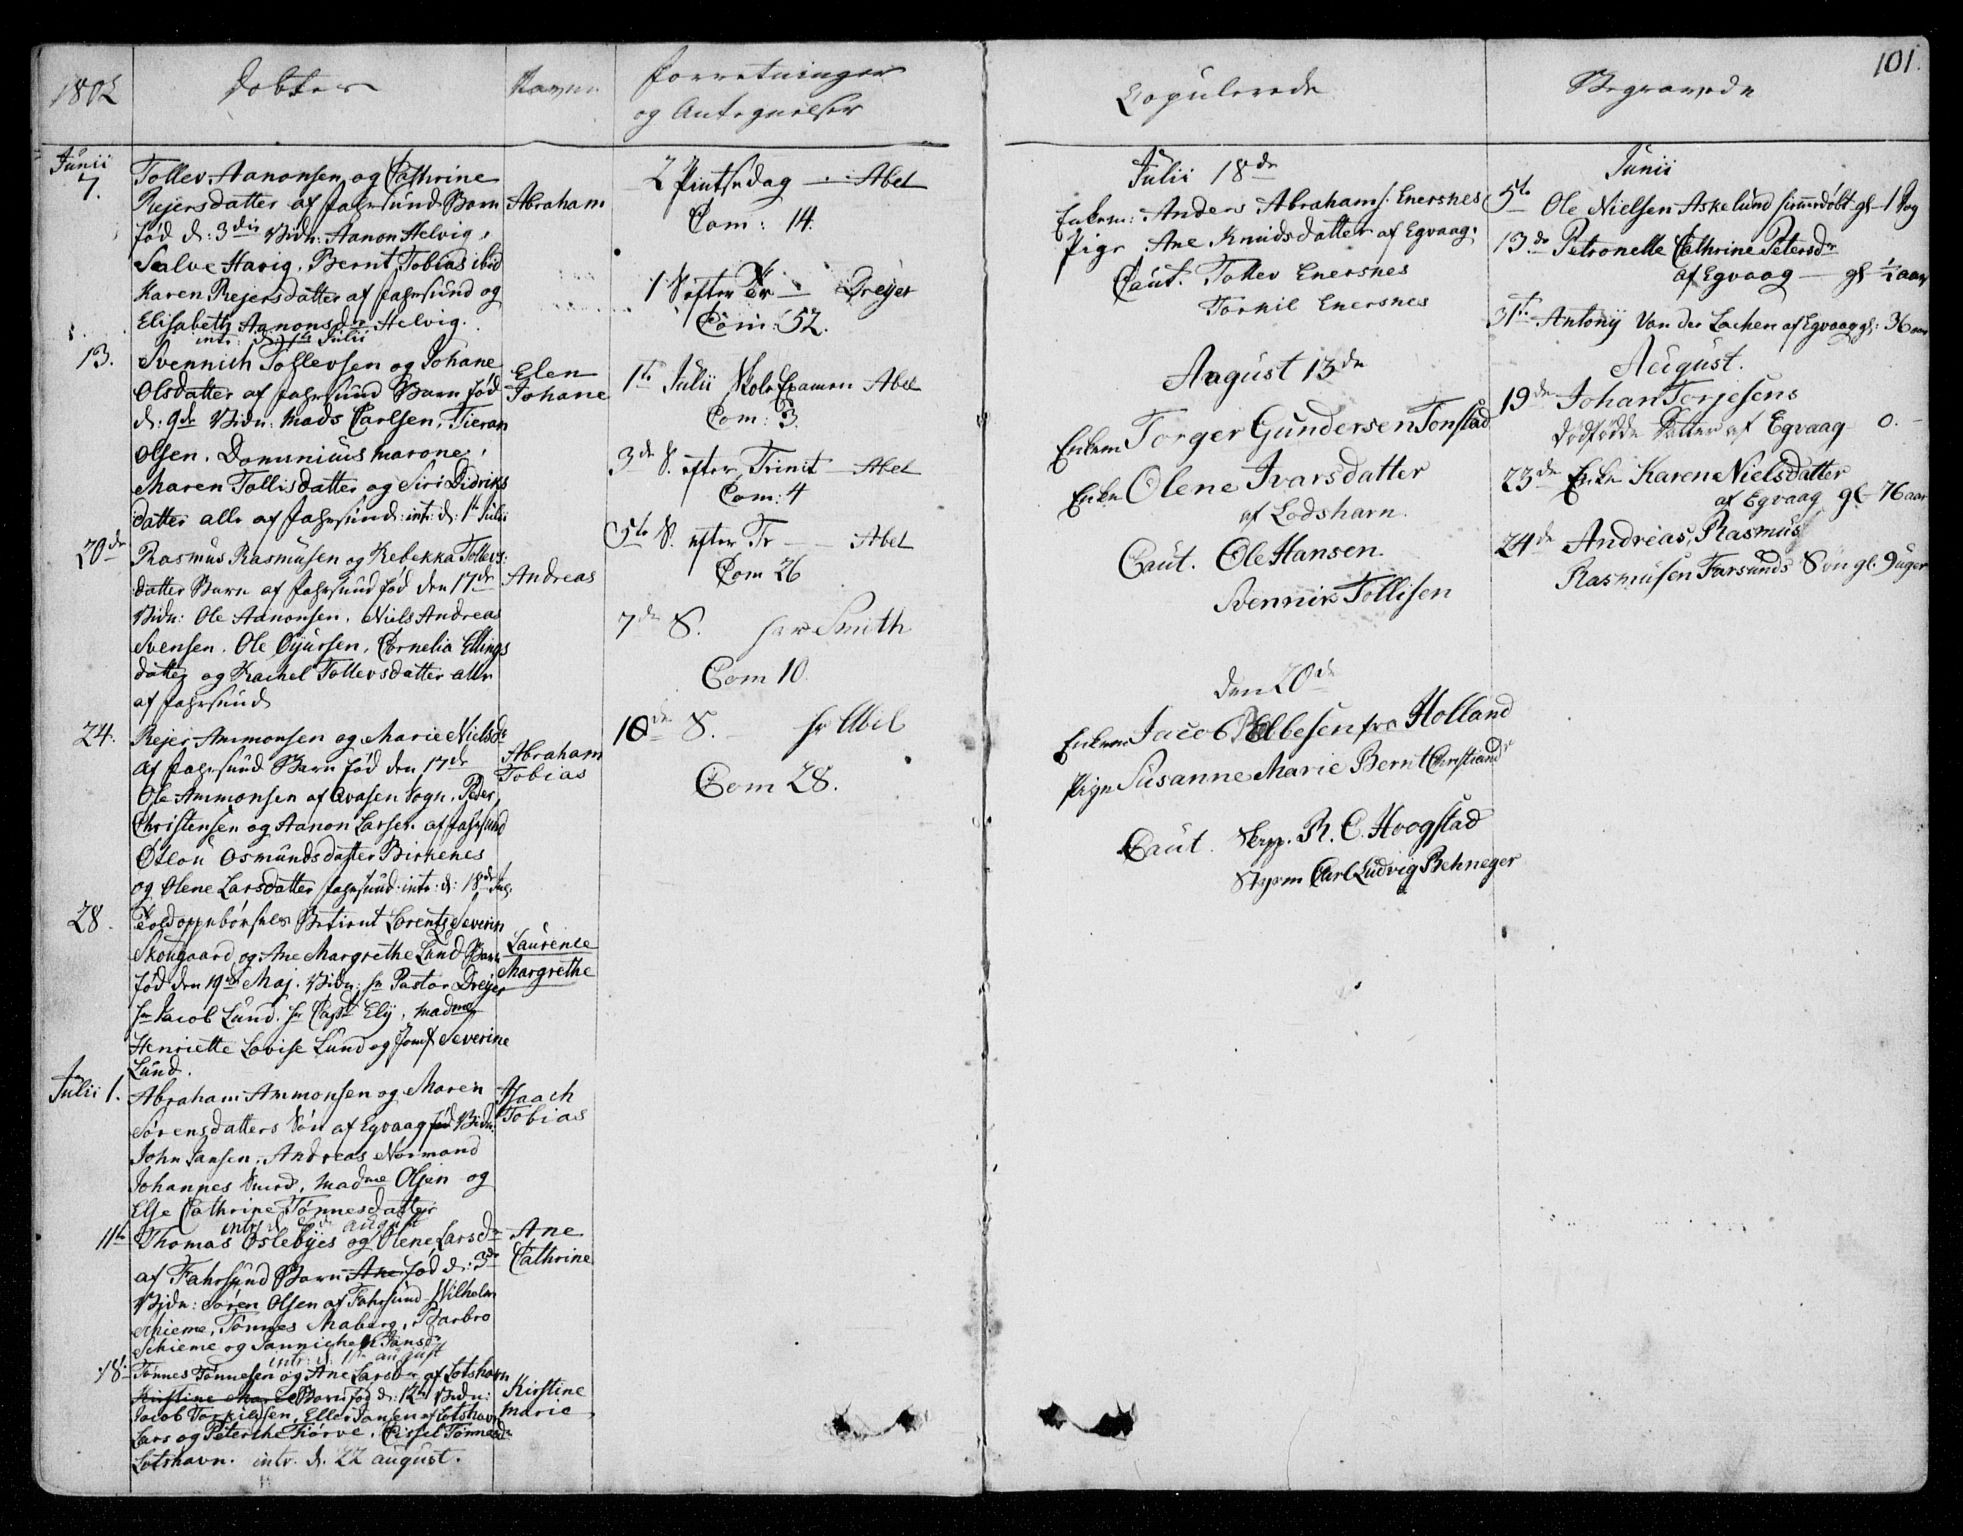 1802
Døbte
Navne
Forretninger
og Antegnelser
Junii
7.
Tollev Aanonsen og Cathrine
Rejersdatter af Fahrsund Barn
fød d: 3die Vidn: Aanon Helvig,
Salve Havig, Bernt Tobias ibid
Karen Rejersdatter af Fahrsund og
Elisabeth Aanonsdr Helvig.
intr: d: Julii
Abraham
13.
Svennich Tollevsen og Johane
Olsdatter af Fahrsund Barn fød
d: 9de Vidn: Mads Carlsen, Tieran
Olsen, Dominicus Marone,
Maren Tollisdatter og Siri Didriks
datter alle af Fahrsund: intr: d: 1te Julii
Elen
Johane
20de
Rasmus Rasmusen og Rebekka Tollevs:
datter Barn af Fahrsund fød den 17de
Vidn: Ole Aanonsen, Niels Andreas
Svensen, Ole Gjursen, Cornelia Ellings
datter og Rachel Tollevsdatter alle
af Fahrsund
Andreas
24.
Rejer Ammonsen og Marie Nielsdr
af Fahrsund Barn fød den 17de
Ole Ammonsen af Qvasen Sogn, Peder
Christensen og Aanon Larsen af Fahrsund
Osmundsdatter Birkenes
og Olene Larsdatter Fahrsund intr: d: 18de Jul.
Abraham
Tobias
28.
Toldoppebørsels Betient Lorents Severin
Skougaard og Ane Margrethe Lund Barn
fød den 19de Maj. Vidn: Hr Pastor Dreyer
Hr Jacob Lund, Hr Capt Ely, Madme
Henriette Lovise Lund og Jomf Severine
Lund.
Laurence
Margrethe
Julii 1.
Abraham Ammonsen og Maren
Sørensdatters Søn af Egvaag fød Vidn:
John Jansen, Andreas Normand
Johannes Smed, Madme Olsen og
Else Cathrine Tønnesdatter
intr: d: august
Isaach
Tobias
11te
Thomas Oslebyes og Olene Larsdr
af Fahrsund Barn Ane fød d: 3de
Vidn: Søren Olsen af Fahrsund Wilhelm
Schieme, Tønnes Maberg, Barbro
Schieme og Jannicheh Jansdr
intr: d: 1te august
Ane
Cathrine
18.
Tønnes Tønnesen og Ane Larsdr af Lotshavn
Kirstine Marie Barn fød d: 12te Vidn:
Jacob Torkilsen, Eller Jansen af Lotshavn
Lars og Peterche Tiørve, Cissel Tønnesdr
Lotshavn. intr. d. 22 august.
Kirstine
Marie
2 Pintsedag — Abel
Com: 14.
1 S efter Tr — Dreyer
Com: 52.
1te Julii Skole Examen Abel
Com: 3.
3de S. efter Trinit — Abel
Com: 4
5te S. efter Tr — Abel
Com 26
7de S. Hr Smith
Com 10.
10de S. — Hr Abel
Com 28.
Copulerede
Julii 18de
Enkem: Anders Abrahams. Enersnes
Pige Ane Knudsdatter af Egvaag.
Caut. Tollev Enersnes
Torkil Enersnes
August 13de
Enkem Torger Gundersen Tonstad
Enke Olene Ivarsdatter
af Lodshavn.
Caut. Ole Hansen.
Svennik Tollisen
den 20de
Enkem Jacob Ebbesen fra Holland
Pige Susanne Marie Bernt Christiandr
Caut. Skipp. R. C. Hoogstad
Styrm Carl Ludvig Behneger
101.
Begravede
Junii
5te Ole Nielsen Askelund hiemmedøbt gl 1 Dag
13de Petronelle Cathrine Petersdr
af Egvaag — gl ½ aar
31te Antony Van der Lochen af Egvaag gl: 36 aar
August.
19de Johan Torjesens
dødfødde Datter af Egvaag 0. —
23de Enke Karen Nielsdatter
af Egvaag gl — 76 aar
24de Andreas, Rasmus
Rasmusen Farsunds Søn gl. 9 uger